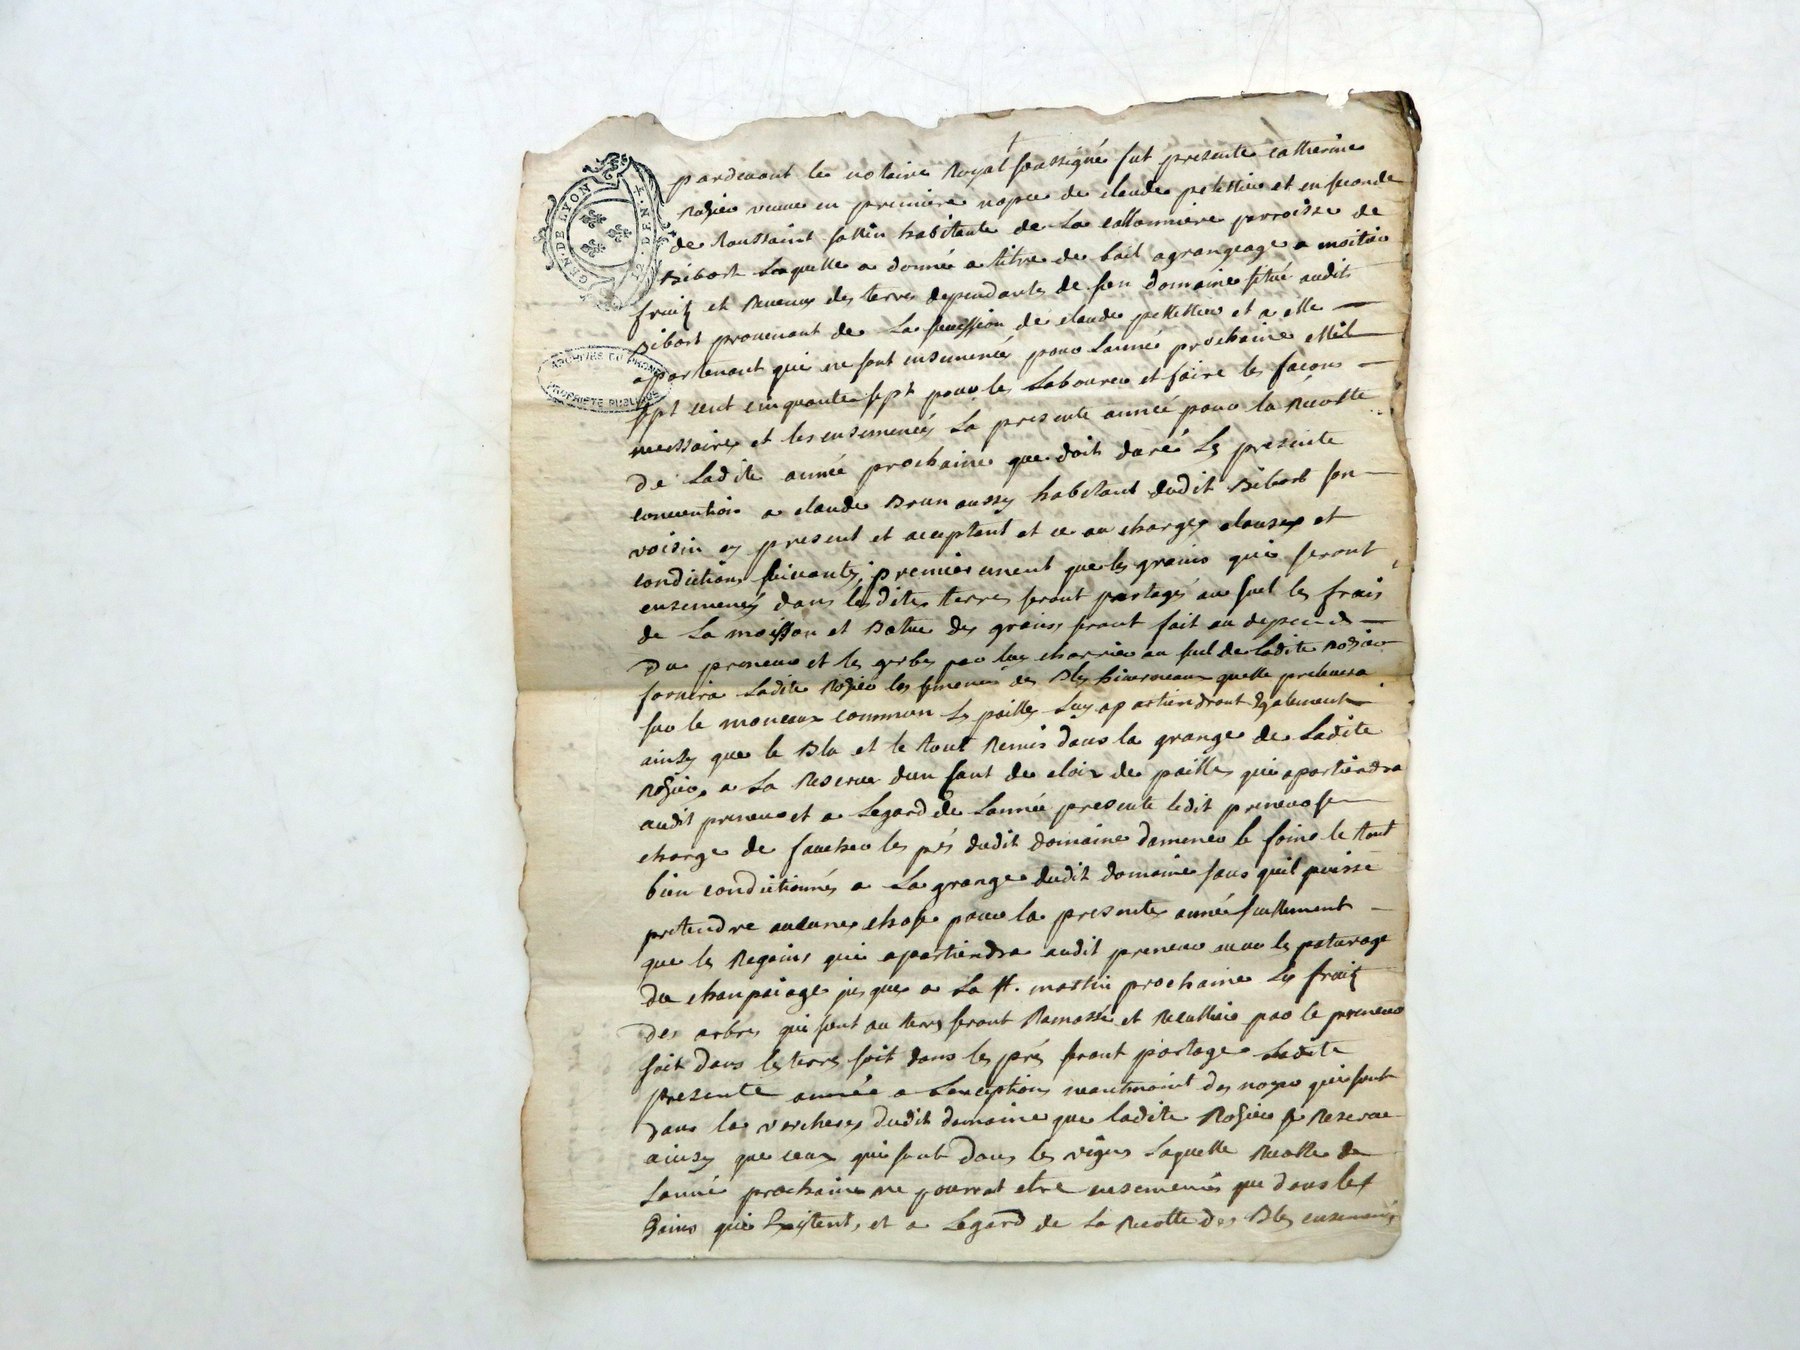 GEN. DE LYON
12. DEN. 4.
ARCHIVES DU RHONE
PROPRIETE PUBLIQUE
pardevant le notaire Royal soussigné fut presente catherine
Rosier veuve en premiere nopce de claude peletier et en seconde
de Toussaint habitante de La parroisse de
Bibost Laquelle a donné a titre de bail agrangeage a moitié
fruitz et Revenus des terres dependantes de son domaine situé audit
Bibost provenant de La succession de claude pelletier et a elle
apartenant qui ne sont ensemencés pour Lannée prochaine mil
sept cent cinquante sept pour les Labourer et faire les facons
necessaires et les ensemencés La presente année pour la Recolte
De Ladite année prochaine que doit duré La presente
convention a claude Brun aussy habitant dudit Bibost son
voisin cy present et aceptant et ce au charges clauses et
condictions suivantes, premierement que les grains qui seront
ensemencés dans lesdites terres seront partagés au suel les frais
de La moisson et Batue des grains seront fait au depend
Du preneur et les gerbes par luy charriés au suel de ladite Rosier
fornira Ladite Rosier les semences des Bleds hivernaux quelle prelevera
sur le monceau commun Les pailles Luy apartiendront Egalement
ainsy que le Bla et le tout Remis dans la grange de Ladite
Rosier a La Reserve dun sant de cloix de pailles qui apartiendra
audit preneur et a Legard de Lannée presente ledit preneur se
charge de faucher les prés dudit domaine damener le foins le tout
bien condictionnés a La grange dudit domaine sans quil puisse
pretendre aucunes chose pour la presente année seullement
que les Regains qui apartiendra audit preneur avec les paturage
du champeiage jusques a La st. martin prochaine Les fruitz
Des arbres qui sont au terres seront Ramassé et Recullie par le preneur
soit dans les terres soit dans les prés seront partage Ladite
presente année a Lexception neantmoint des noyer qui sont
Dans la verchere dudit domaine que ladite Rosier se Reserve
ainsy que ceux qui sont dans les vignes Laquelle Recolte de
Lannée prochaine ne pourrat etre ensemencés que dans les
qui Existent, et a Legard de La Recolte des Bleds ensemencés